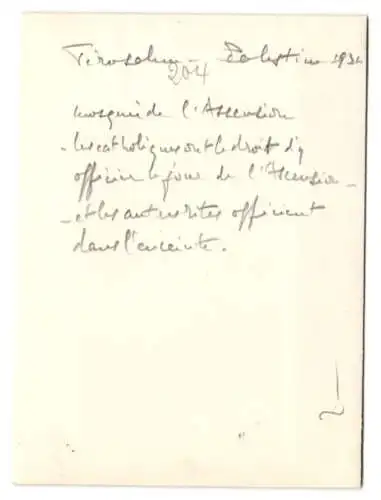 Jérusalem - Palestine 193
204
mosquée de l'Ascension
- les catholiques ont le droit d'y
officier le jour de l'Ascension -
- et les autres rites officient
dans l'enceinte.